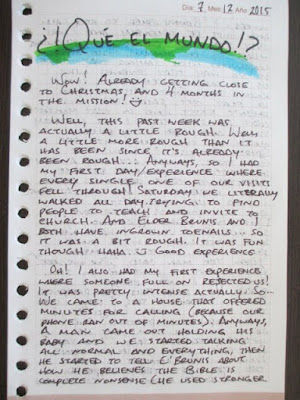 Dia 7 Mes 12 Año 2015
¿!QUÉ EL MUNDO!?
WOW! ALREADY GETTING CLOSE
TO CHRISTMAS, AND 4 MONTHS IN
THE MISSION! :)
WELL, THIS PAST WEEK WAS
ACTUALLY A LITTLE ROUGH. WELL
A LITTLE MORE ROUGH THAN IT
HAS BEEN SINCE IT'S ALREADY
BEEN ROUGH... ANYWAYS, SO I HAD
MY FIRST DAY/EXPERIENCE WHERE
EVERY SINGLE ONE OF OUR VISITS
FELL THROUGH! SATURDAY WE LITERALLY
WALKED ALL DAY TRYING TO FIND
PEOPLE TO TEACH AND INVITE TO
CHURCH. AND ELDER BRUNIS AND I
BOTH HAVE INGROWN TOENAILS... SO
IT WAS A BIT ROUGH. IT WAS FUN
THOUGH HAHA :) GOOD EXPERIENCE
OH! I ALSO HAD MY FIRST EXPERIENCE
WHERE SOMEONE FULL ON REJECTED US!
IT WAS PRETTY INTENSE ACTUALLY. SO
WE CAME TO A HOUSE THAT OFFERED
MINUTES FOR CALLING (BECAUSE OUR
PHONE RAN OUT OF MINUTES). ANYWAYS,
A MAN CAME OUT HOLDING HIS
BABY AND WE STARTED TALKING
ALL NORMAL AND EVERYTHING, THEN
HE STARTED TO TELL E'BRUNIS ABOUT
HOW HE BELIEVES THE BIBLE IS
COMPLETE NONSENSE (HE USED STRONGER